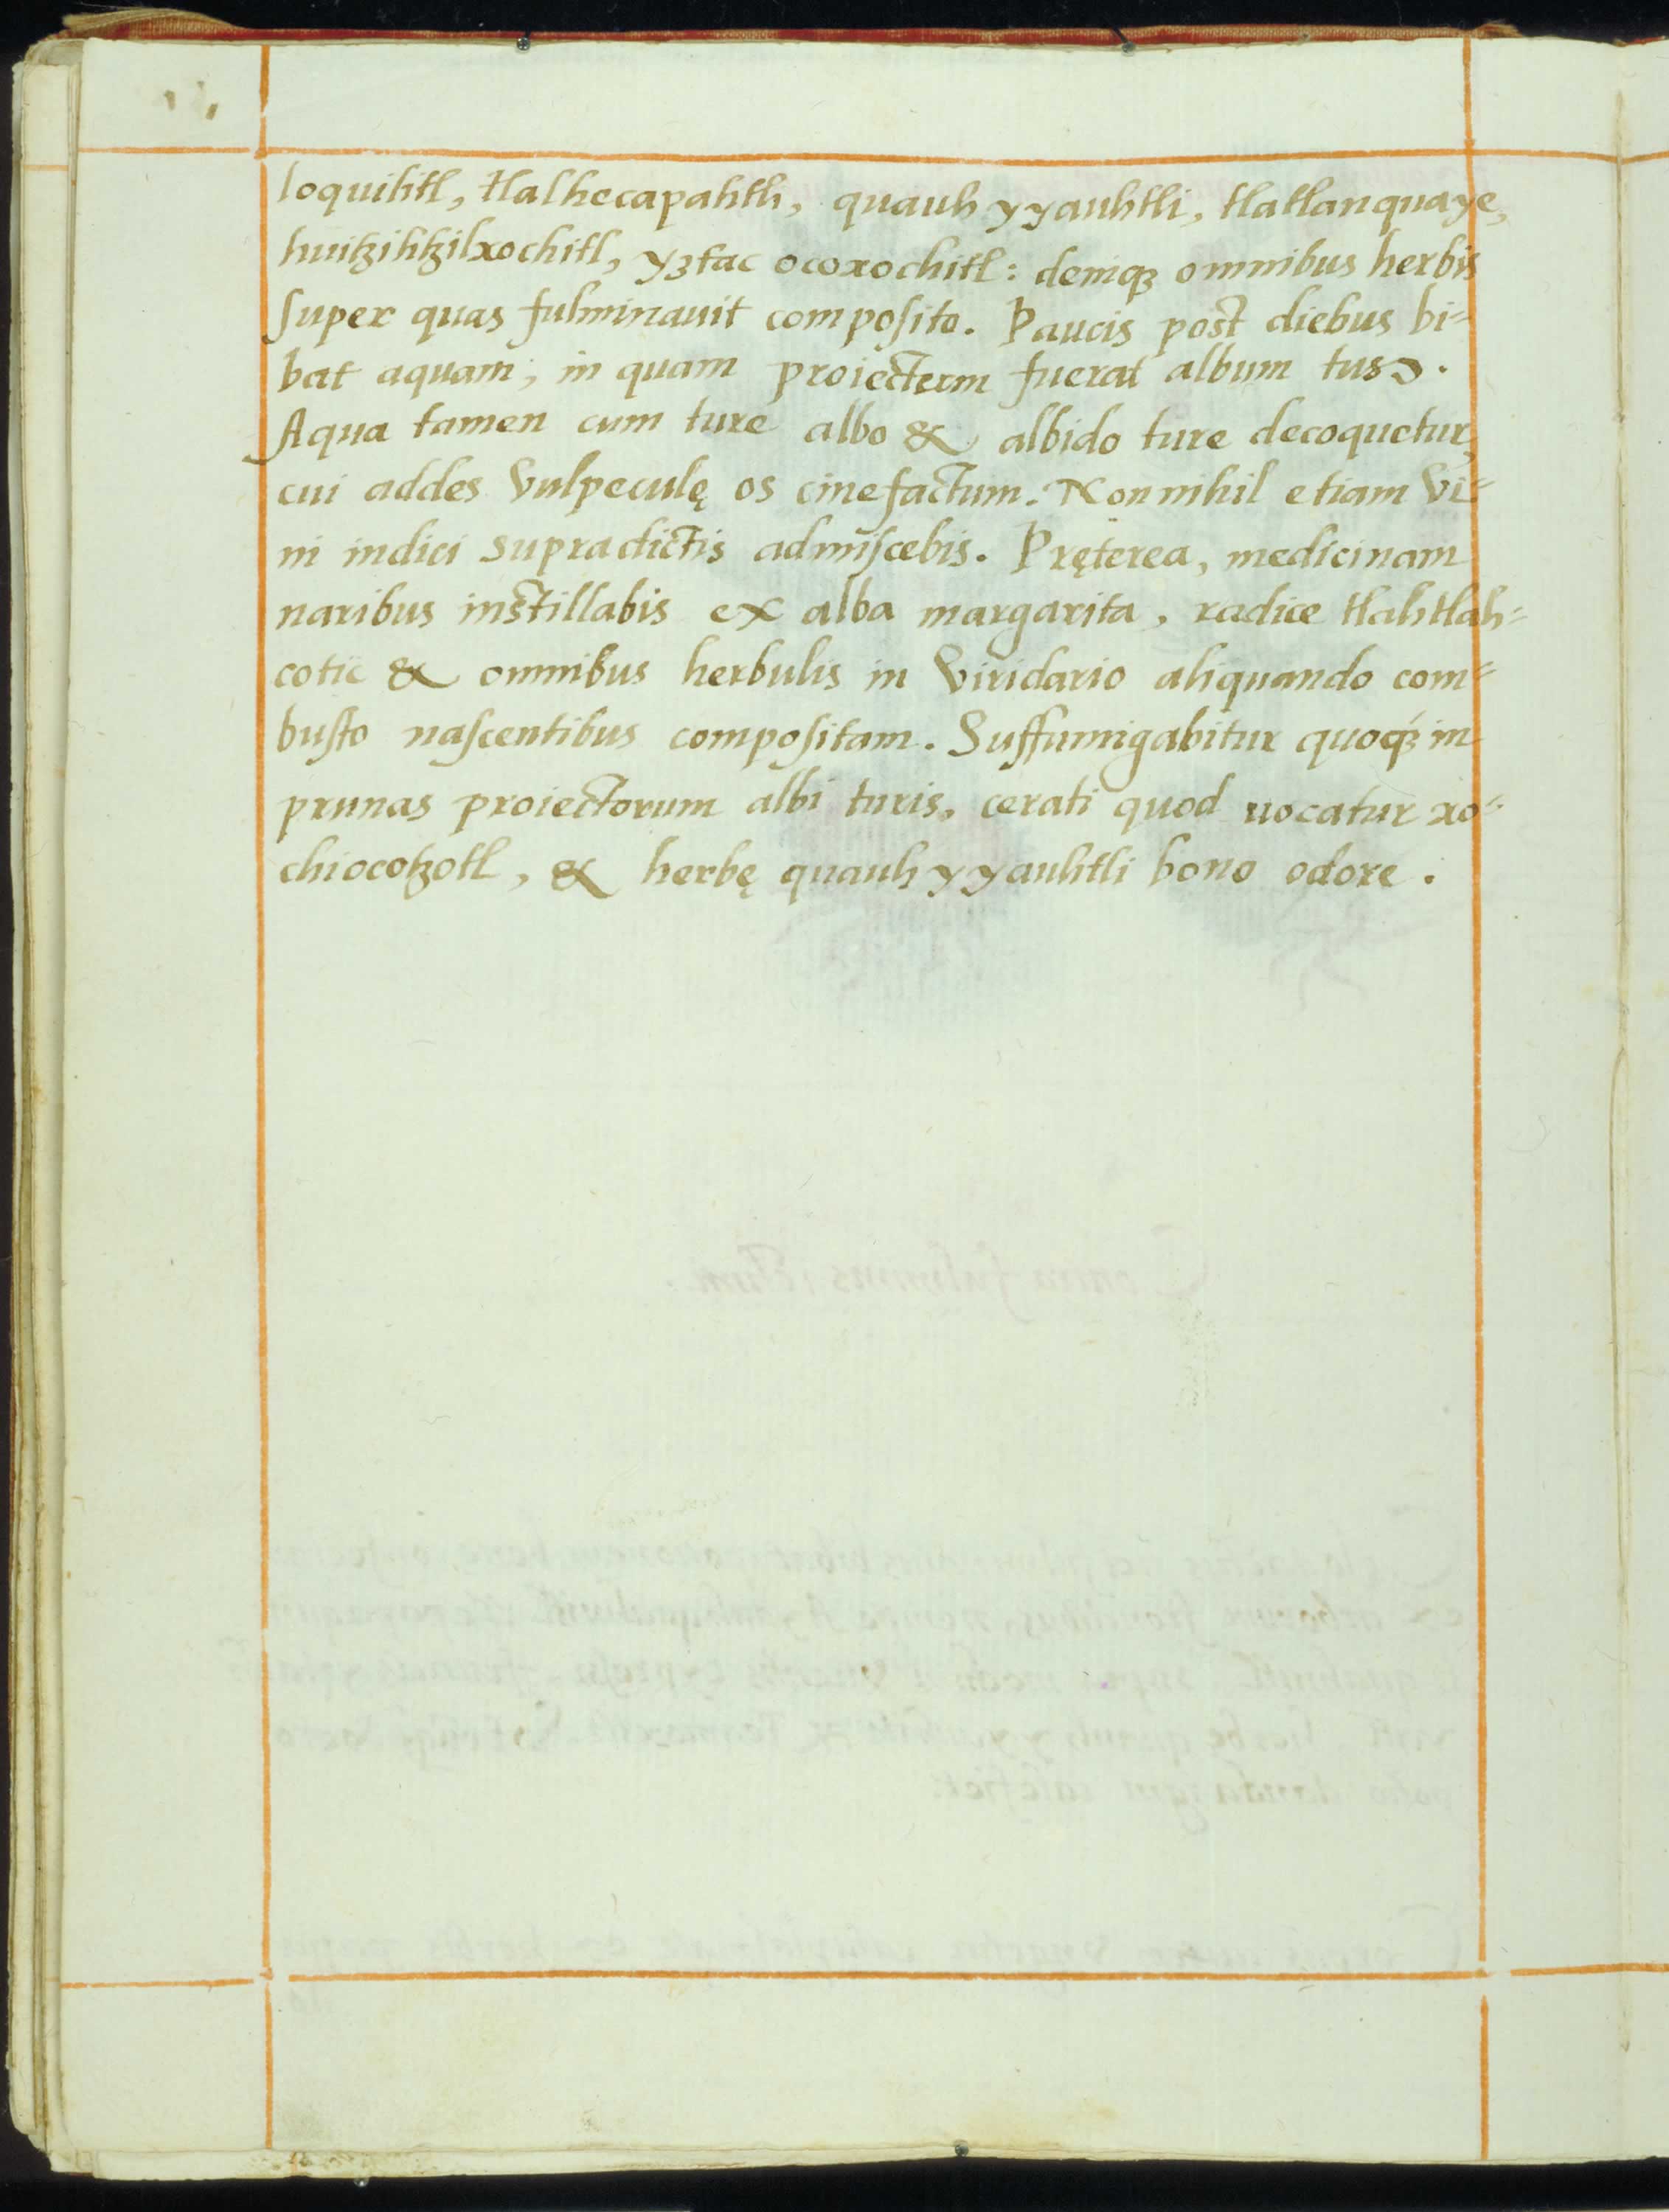 loquihtl, tlalhecapahtli, quauh yyauhtli, tlatlanquaye,
huitzihtzilxochitl, yztac ocoxochitl: deniqꝫ omnibus herbis
super quas fulminauit composito. Paucis post diebus bi=
bat aquam; in quam proiectum fuerat album tus.
Aqua tamen cum ture albo & albido ture decoquetur,
cui addes vulpeculę os cinefactum. Nonnihil etiam vi=
ni indici supradictis admiscebis. Pręterea, medicinam
naribus instillabis ex alba margarita, radice tlahtlah=
cotic & omnibus herbulis in viridario aliquando com=
busto nascentibus compositam. Suffumigabitur quoqꝫ in
prunas proiectorum albi turis, cerati quod uocatur xo=
chiocotzotl, & herbę quauh yyauhtli bono odore.